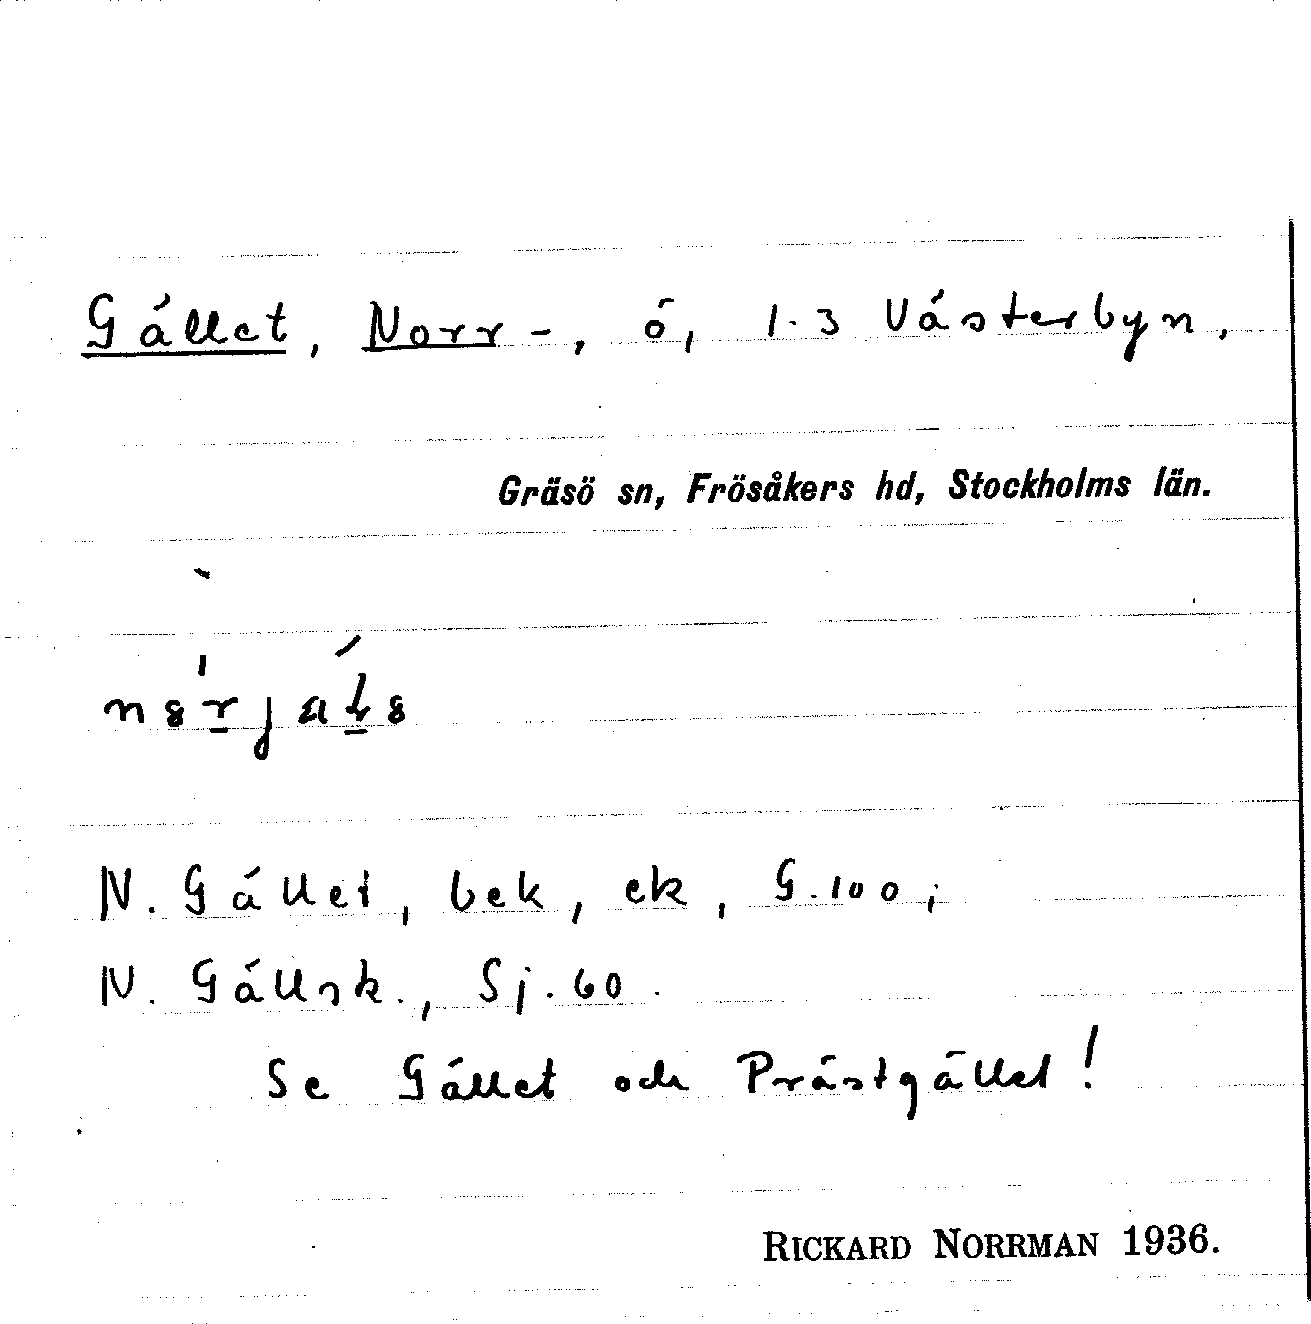 Gället, Norr-, ö, 1-3 Västerbyn.
Gräsö sn, Frösåkers hd, Stockholms län.
N. Gället, bek, ek, G. 100;
N. Gällsk., Sj. 60.
Se Gället och Prästgället!
RICKARD NORRMAN 1936.